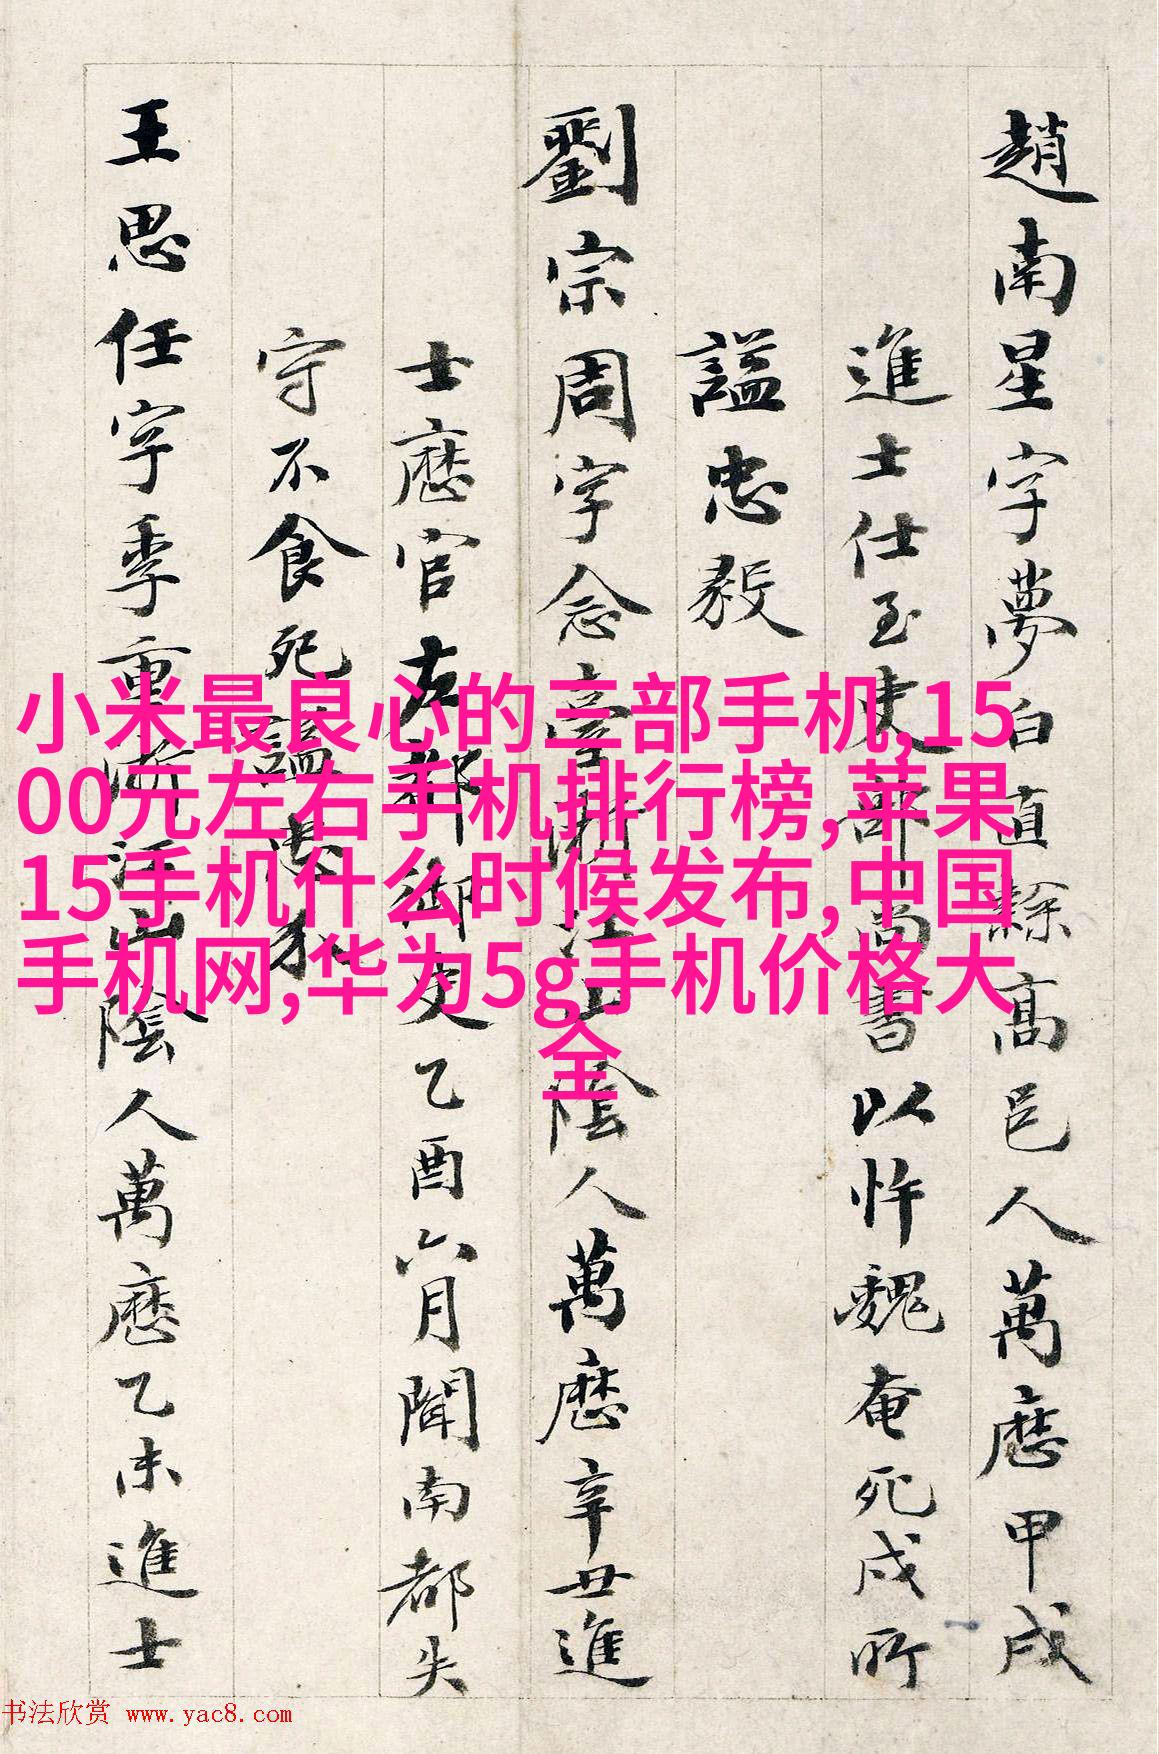 趙南星字夢白直隸高邑人萬曆甲戌
進士仕至吏部尚書以忤魏奄死戍所
謚忠毅
劉宗周字念臺浙江山陰人萬曆辛丑進
士歷官左都御史乙酉六月聞南都失
守不食死謚忠
王思任字季重浙江山陰人萬曆乙未進士
小米最良心的三部手机,15
00元左右手机排行榜,苹果
15手机什么时候发布,中国
手机网,华为5g手机价格大
全
书法欣赏 www.yac8.com